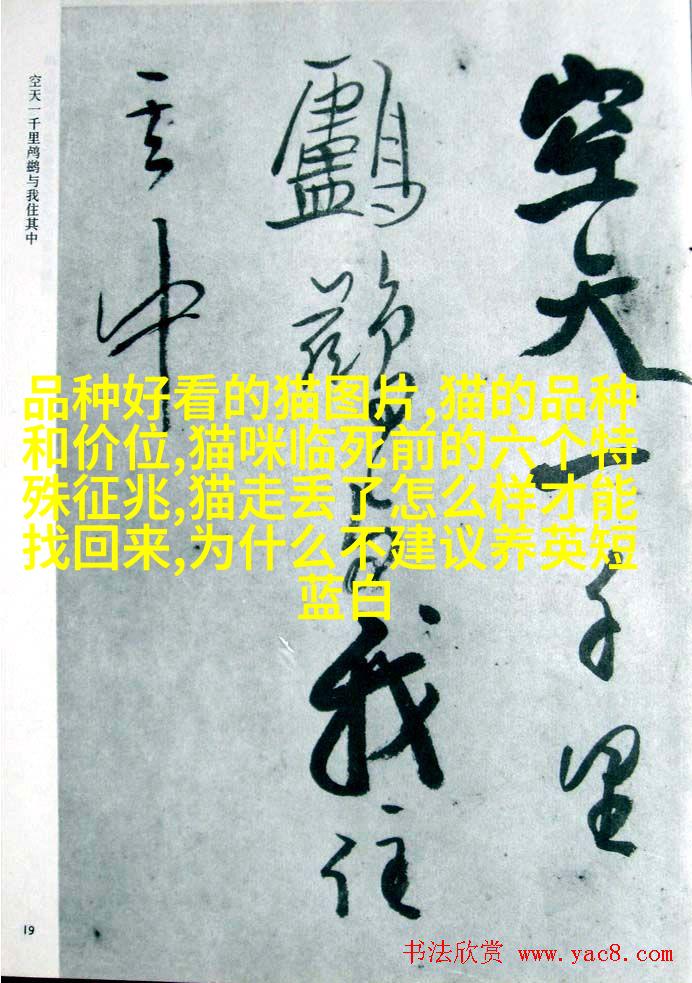 空天一千里
鸕鷀與我住
其中
空天一千里鸬鹚与我住其中
品种好看的猫图片,猫的品种
和价位,猫咪临死前的六个特
殊征兆,猫走丢了怎么样才能
找回来,为什么不建议养英短
蓝白
19
书法欣赏 www.yac8.com